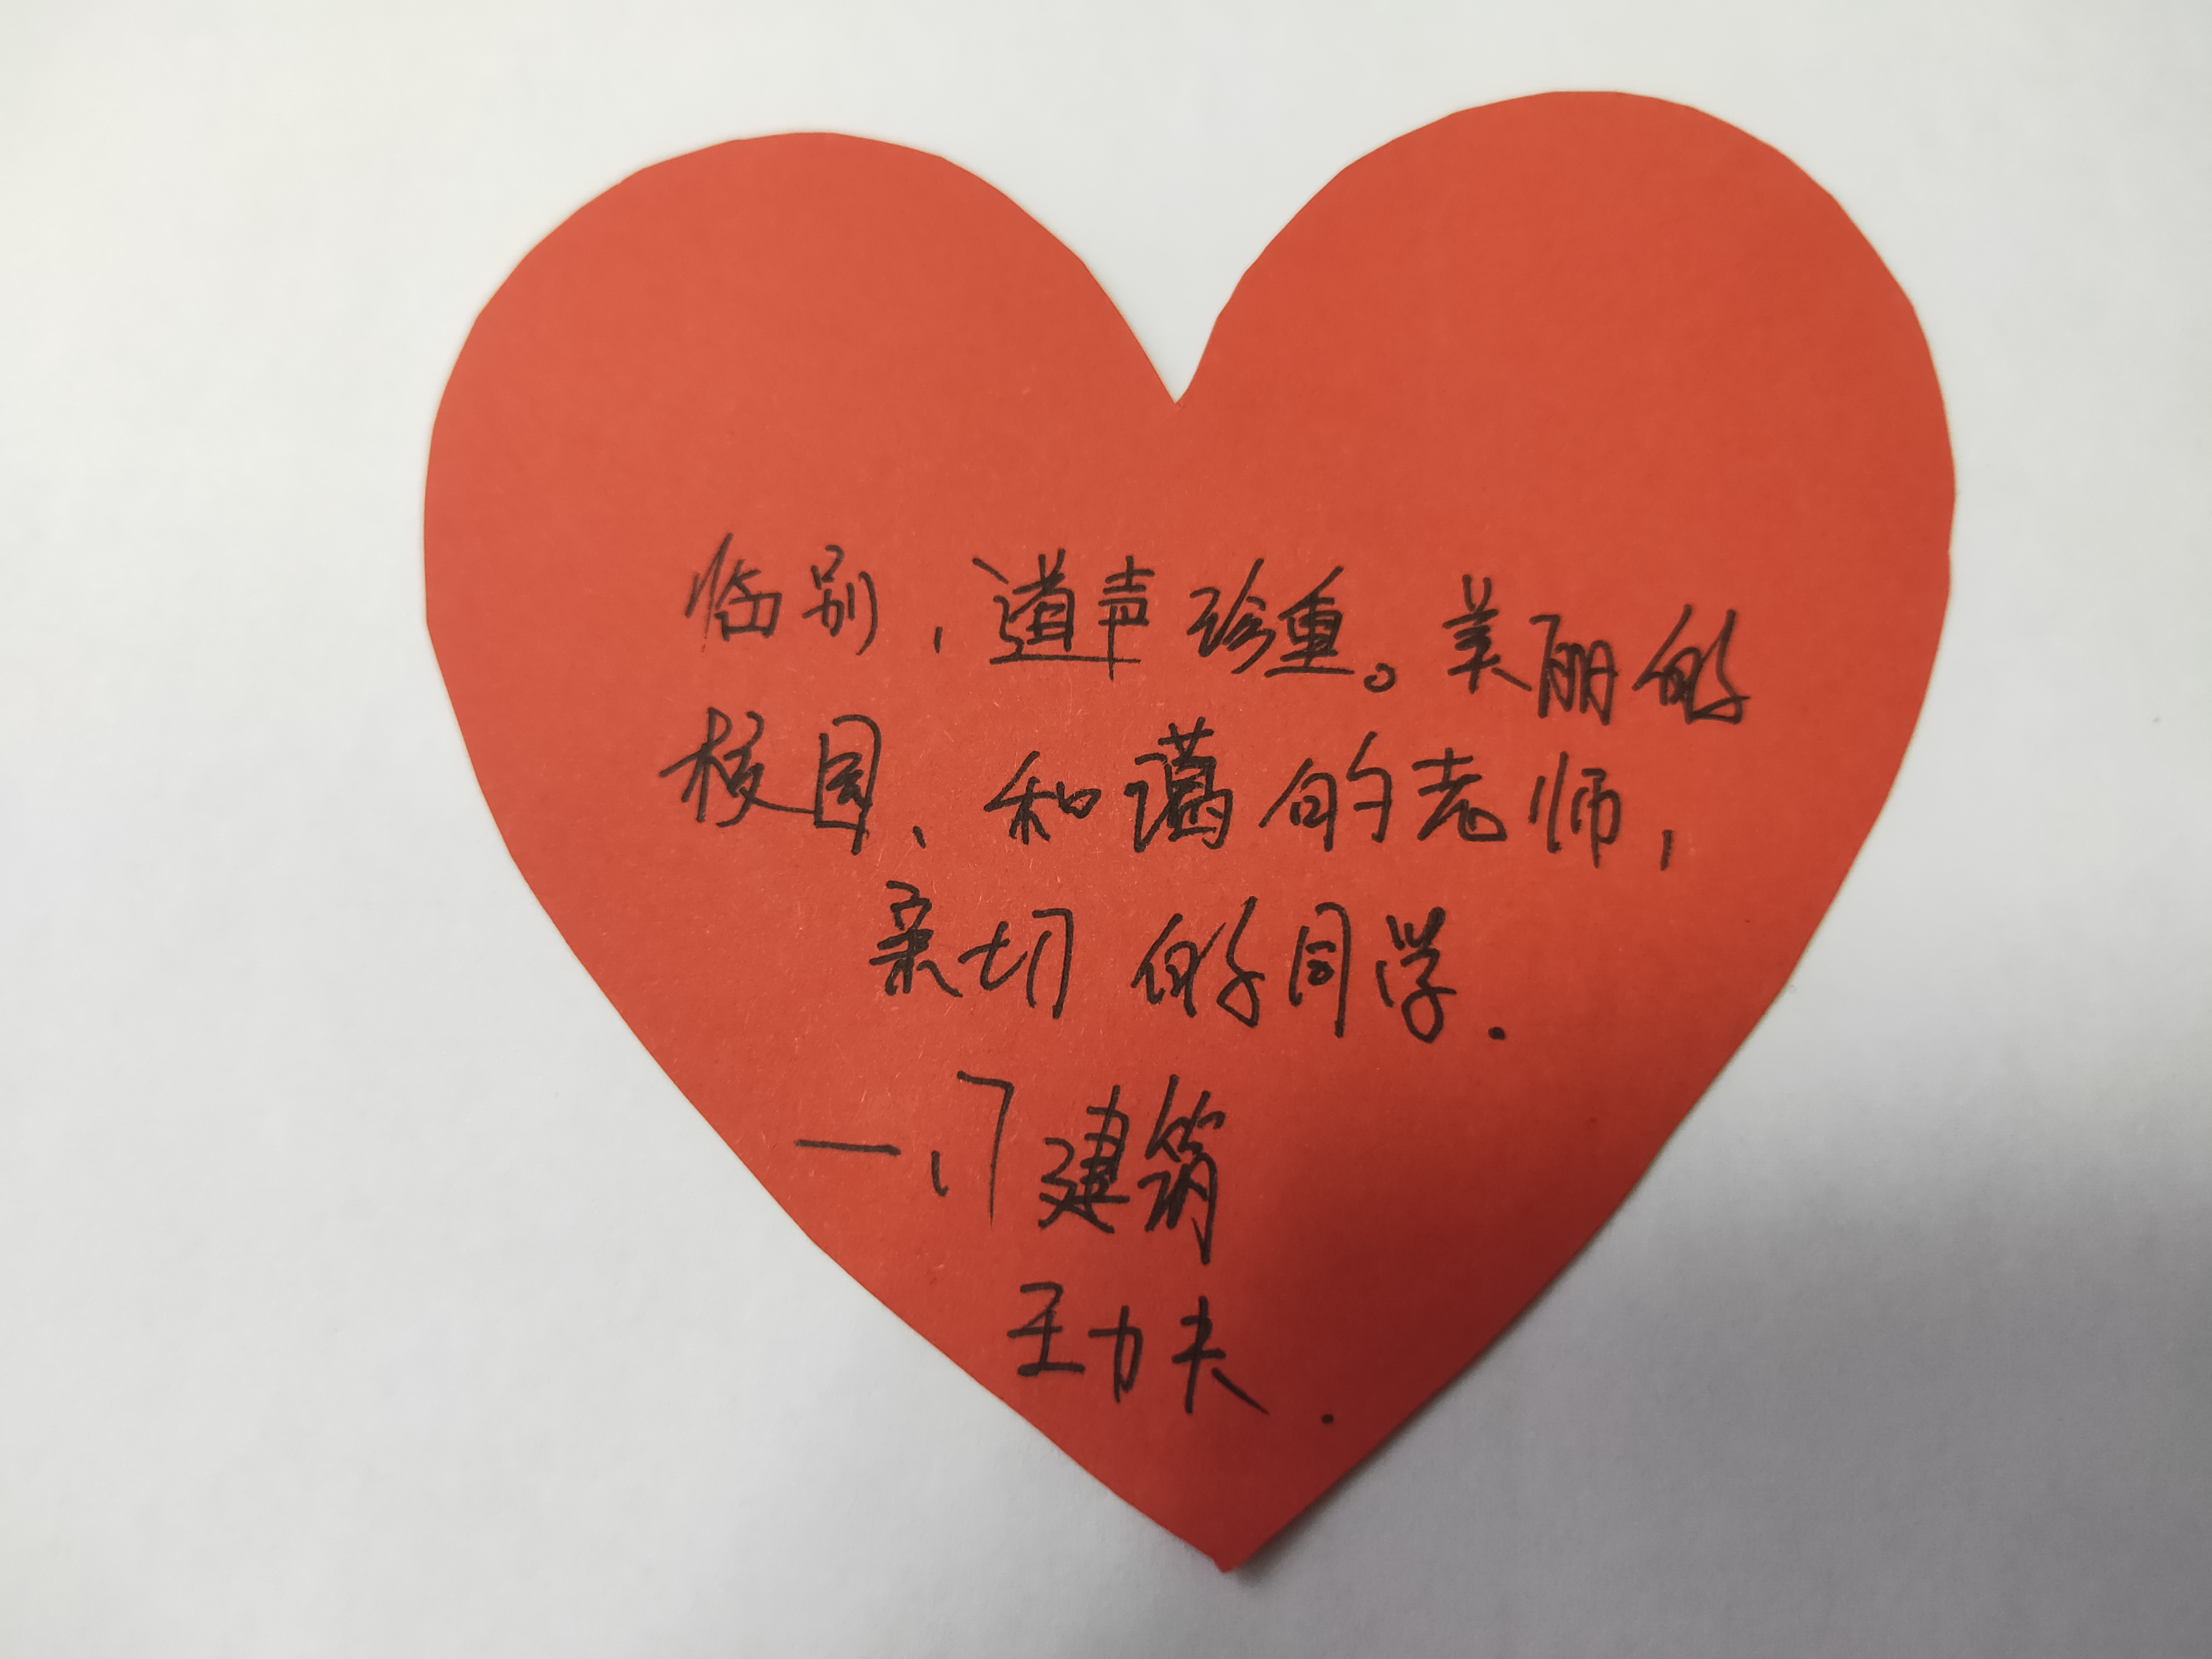 临别，道声珍重。美丽的
校园、和蔼的老师，
亲切的同学.
—17建筑
王力夫.